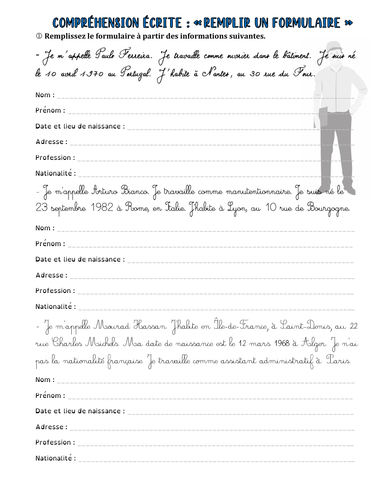 COMPRÉHENSION ÉCRITE : « REMPLIR UN FORMULAIRE »
① Remplissez le formulaire à partir des informations suivantes.
- Je m'appelle Paulo Ferreira. Je travaille comme ouvrier dans le bâtiment. Je suis né
le 10 avril 1970 au Portugal. J'habite à Nantes, au 30 rue du Four.
Nom :
Prénom :
Date et lieu de naissance :
Adresse :
Profession :
Nationalité :
- Je m'appelle Arturo Bianco. Je travaille comme manutentionnaire. Je suis né le
23 septembre 1982 à Rome, en Italie. J'habite à Lyon, au 10 rue de Bourgogne.
Nom :
Prénom :
Date et lieu de naissance :
Adresse :
Profession :
Nationalité :
- Je m'appelle Mourad Hassan. J'habite en Île-de-France, à Saint-Denis, au 22
rue Charles Michels. Ma date de naissance est le 12 mars 1968 à Alger. Je n'ai
pas la nationalité française. Je travaille comme assistant administratif à Paris.
Nom :
Prénom :
Date et lieu de naissance :
Adresse :
Profession :
Nationalité :